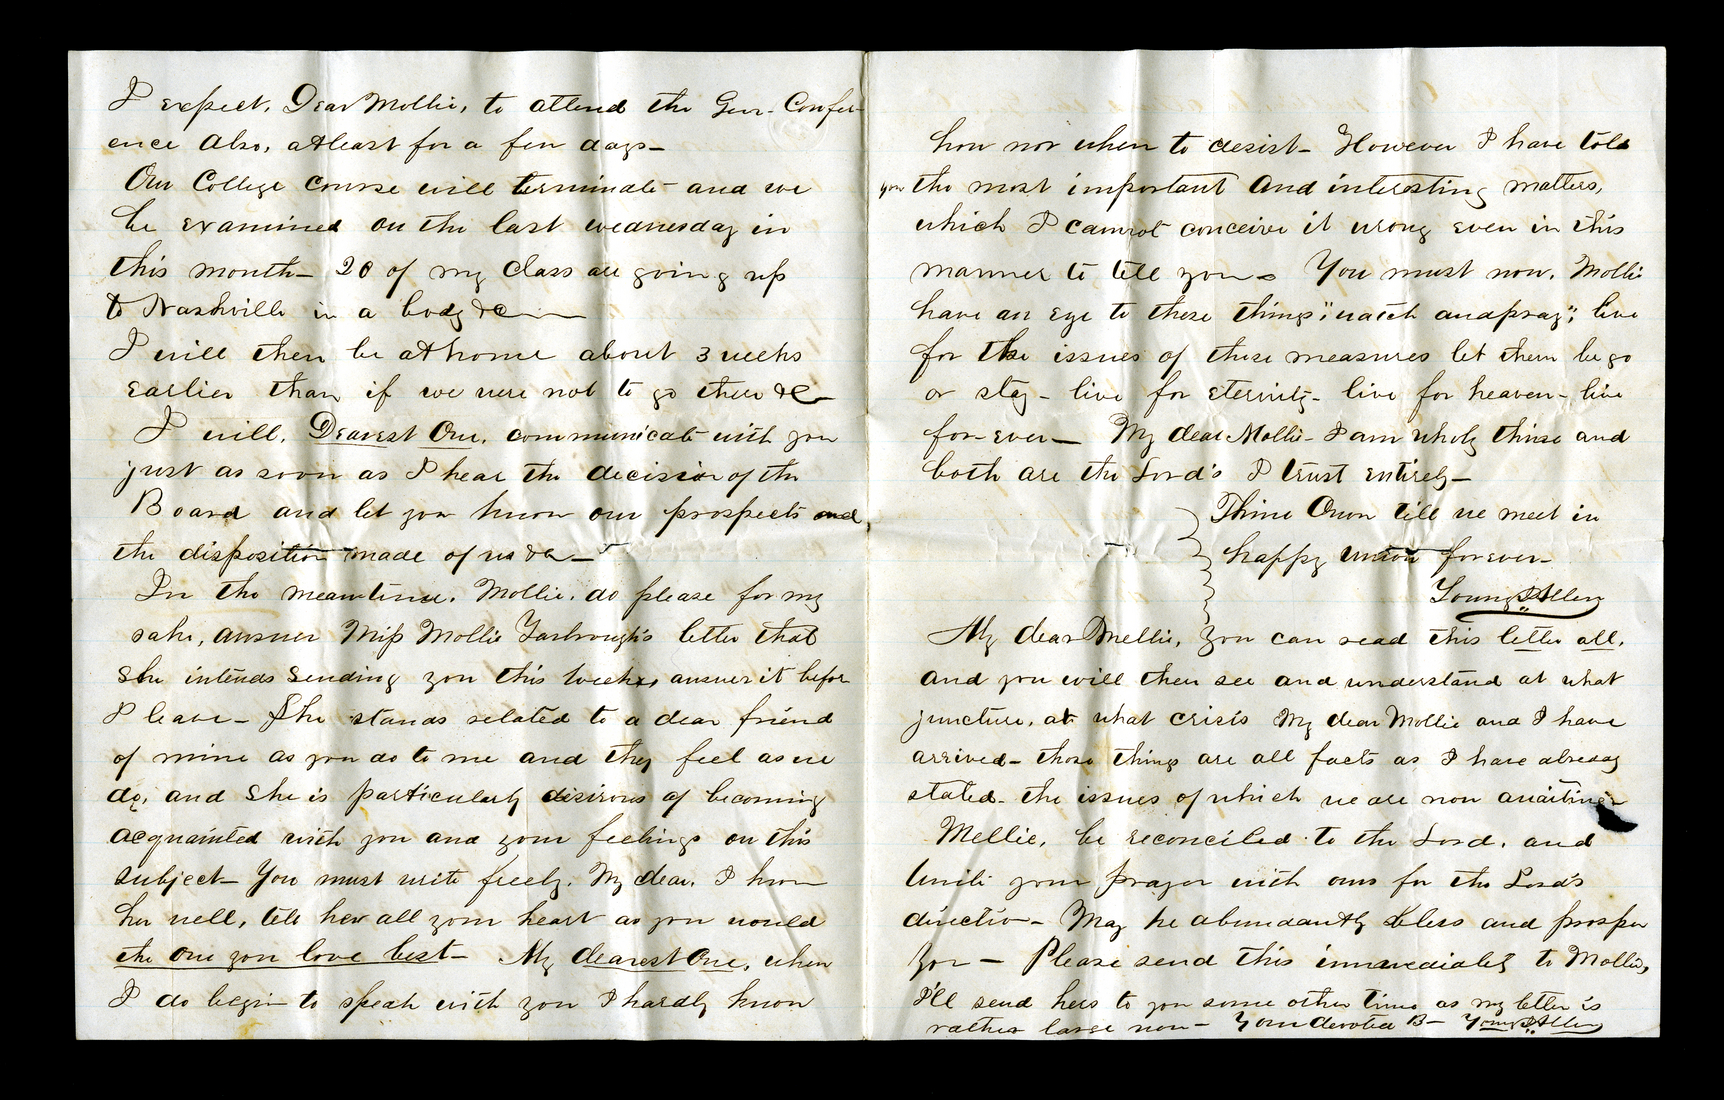 I expect, Dear Mollie, to attend the Gen. Confer-
ence Also, atleast for a few days—
Our College course will terminate and we
be examined on the last wednesday in
this month— 20 of my Class are going up
to Nashville in a body &c—
I will then be at home about 3 weeks
earlier than if we were not to go there &c—
I will, Dearest One, communicate with you
just as soon as I hear the decision of the
Board and let you know our prospects and
the disposition made of us &c—
In the meantime, Mollie, do please for my
sake, answer Miss Mollie Yarbrough's letter that
She intends Sending you this week, answer it before
I leave— She stands related to a dear friend
of mine as you do to me and they feel as we
do, and She is particularly desirous of becoming
acquainted with you and your feelings on this
Subject— You must write freely, My dear, I know
her well, tell her all your heart as you would
the One you love best— My dearest One, when
I do begin to speak with you I hardly know
how nor when to desist— However I have told
you the most important and interesting matters,
which I cannot conceive it wrong even in this
manner to tell you— You must now, Mollie
have an eye to these things "watch and pray"; live
for the issues of these measures let them be go
or stay— live for eternity— live for heaven— live
for-ever— My dear Mollie— I am wholy thine and
both are the Lord's I trust entirely—
Thine Own till we meet in
happy union forever—
Young J. Allen
My dear Mellie, you can read this letter all,
and you will then see and understand at what
juncture, at what crisis My dear Mollie and I have
arrived— those things are all facts as I have already
stated— the issues of which we are now awaiting—
Mellie, be reconciled to the Lord, and
Unite your prayer with ours for the Lord's
direction— May he abundantly bless and prosper
You— Please send this immediately to Mollie,
I'll send hers to you some other time as my letter is
rather large now— Your devoted B— Young J. Allen